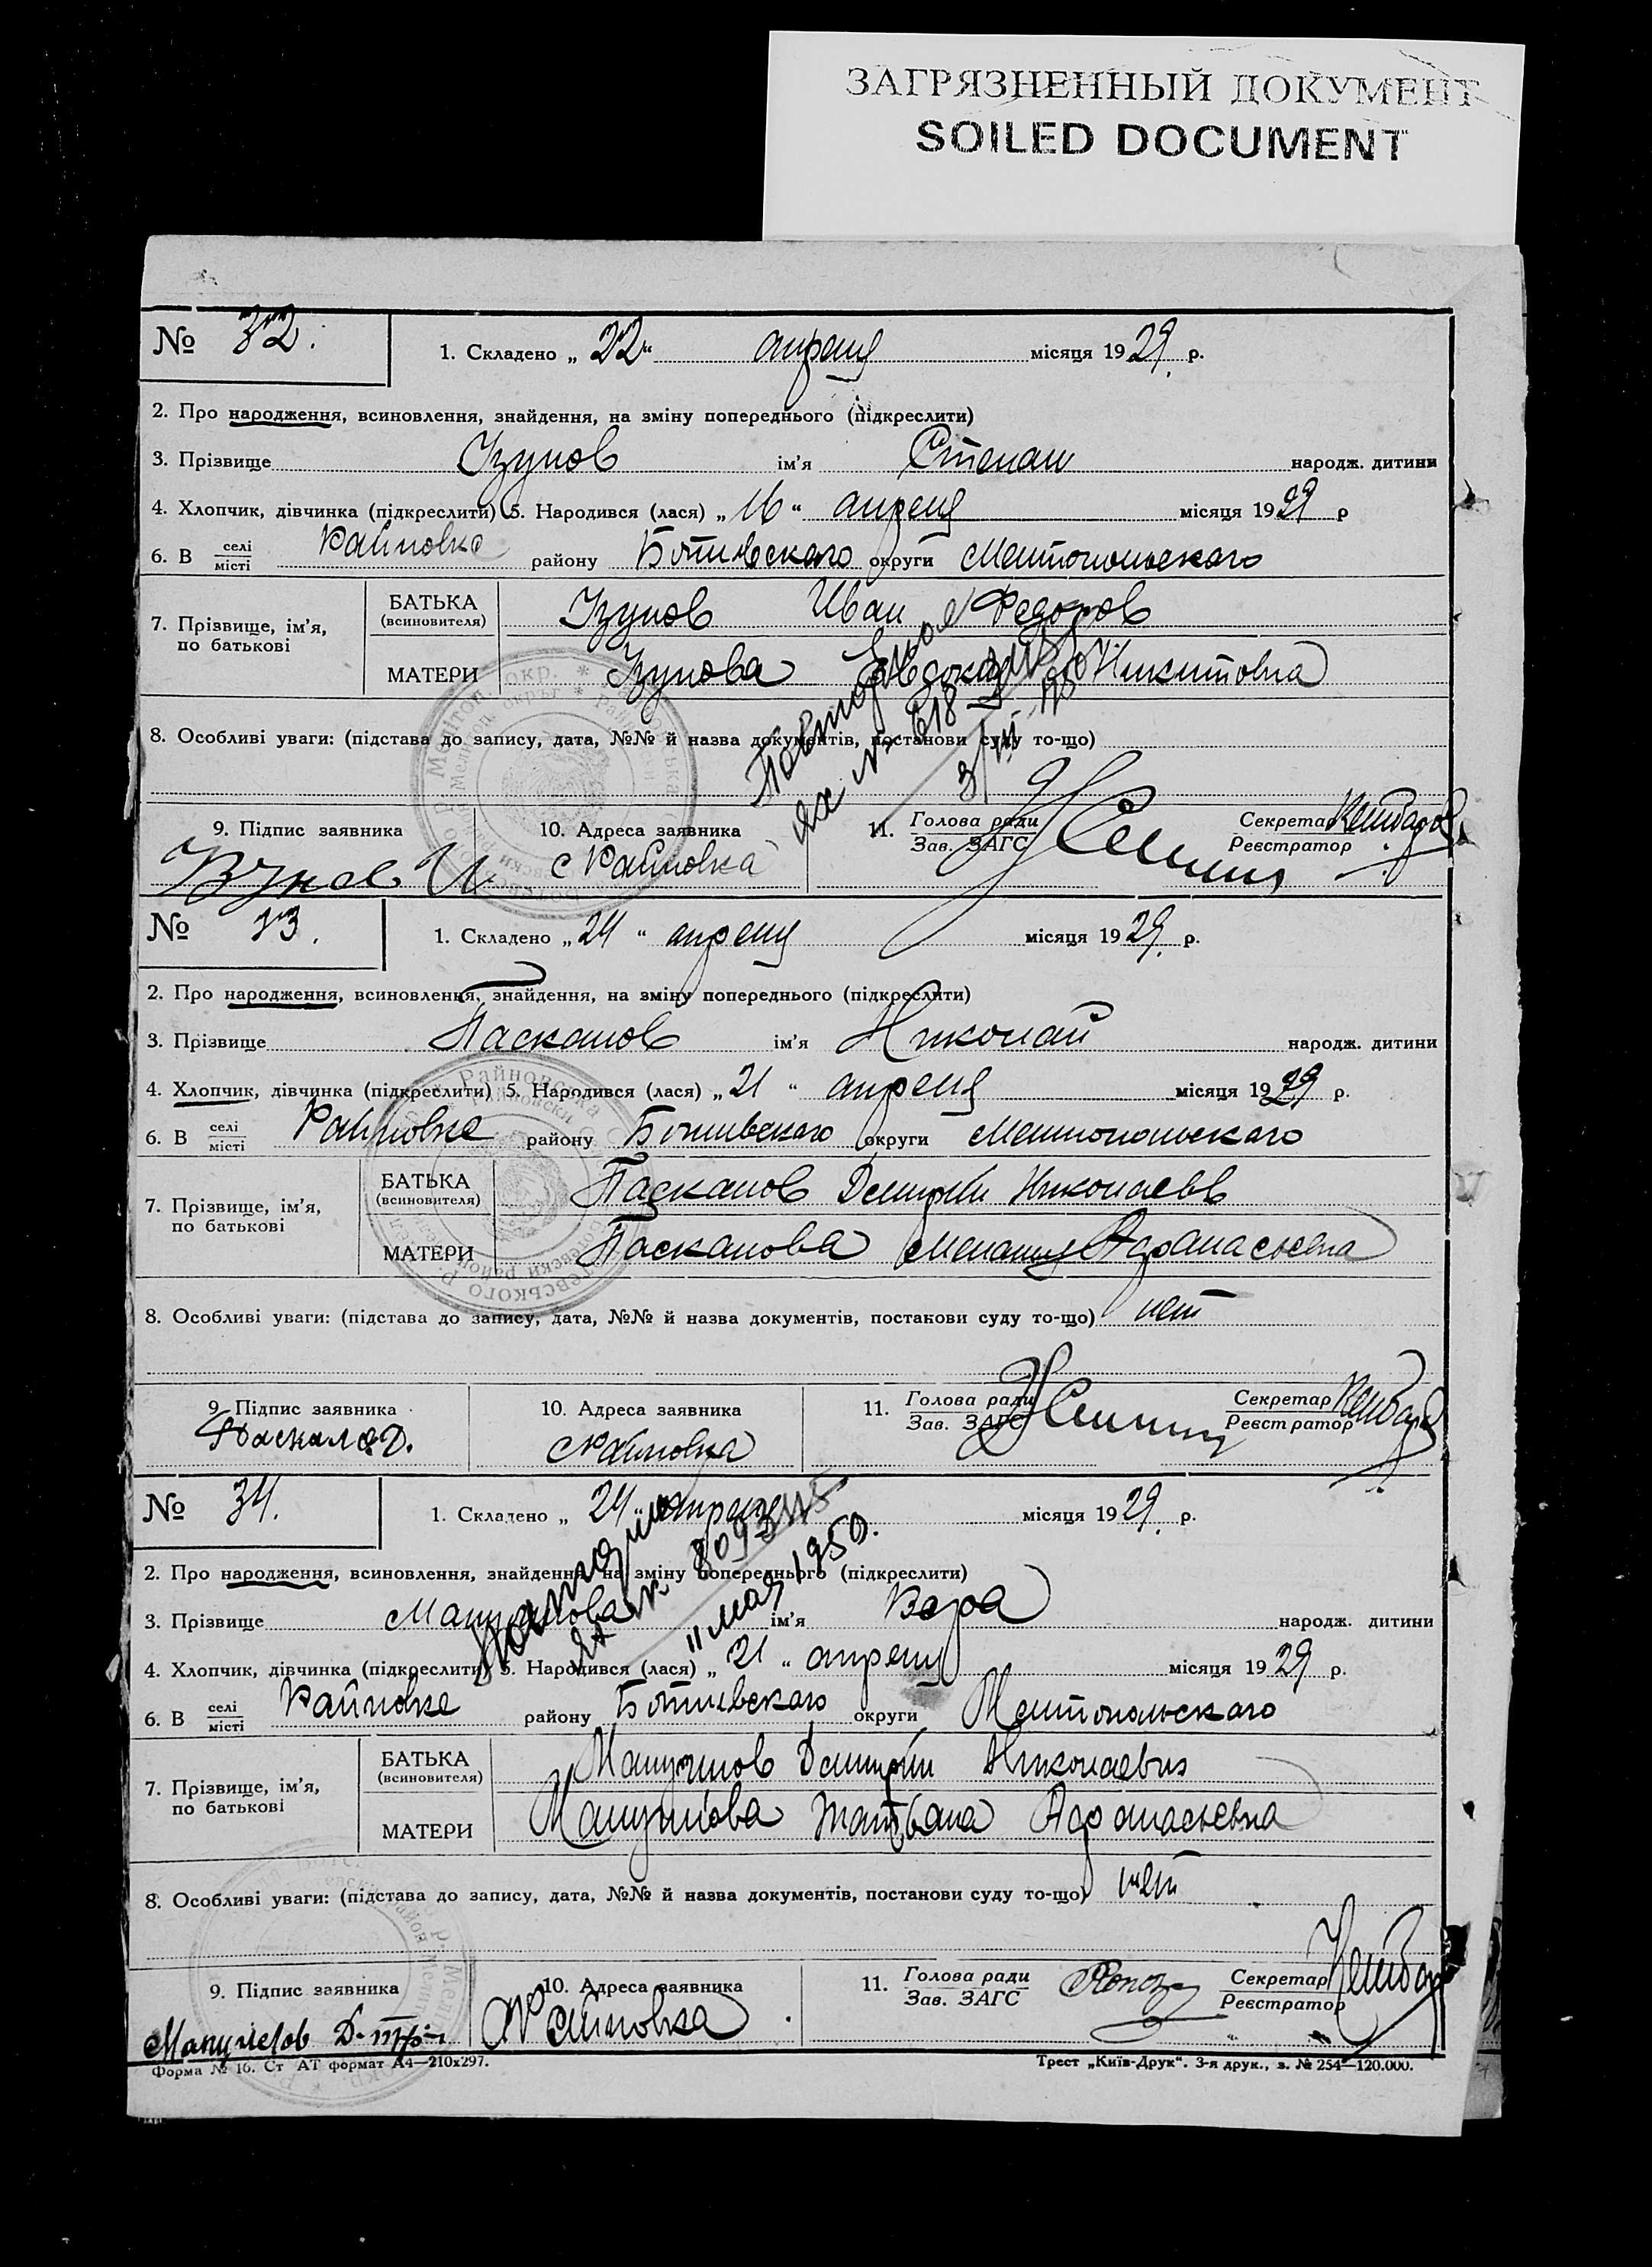 ЗАГРЯЗНЕННЫЙ ДОКУМЕНТ
SOILED DOCUMENT
№ 32. 1. Складено „22“ апреля місяця 1929. р.
2. Про народження, всиновлення, знайдення, на зміну попереднього (підкреслити)
3. Прізвище Узунов ім'я Степан народж. дитини
4. Хлопчик, дівчинка (підкреслити) 5. Народився (лася) „16“ апреля місяця 1929 р
6. В селі/місті Райновка району Ботиевского округи Мелитопольского
7. Прізвище, ім'я, по батькові
БАТЬКА (всиновителя) Узунов Иван Федоров
МАТЕРИ Узунова Никитовна
8. Особливі уваги: (підстава до запису, дата, №№ й назва документів, постанови суду то-що)
9. Підпис заявника 10. Адреса заявника 11. Голова ради/Зав. ЗАГС Секретар/Реєстратор
Узунов И. с Райновка
№ 33. 1. Складено „24“ апреля місяця 1929. р.
2. Про народження, всиновлення, знайдення, на зміну попереднього (підкреслити)
3. Прізвище Паскалов ім'я Николай народж. дитини
4. Хлопчик, дівчинка (підкреслити) 5. Народився (лася) „21“ апреля місяця 1929 р.
6. В селі/місті Райновке району Ботиевского округи Мелитопольского
7. Прізвище, ім'я, по батькові
БАТЬКА (всиновителя) Паскалов Дмитрий Николаевв
МАТЕРИ Паскалова Мелания Афанасьевна
8. Особливі уваги: (підстава до запису, дата, №№ й назва документів, постанови суду то-що) нет
9. Підпис заявника 10. Адреса заявника 11. Голова ради/Зав. ЗАГС Секретар/Реєстратор
с Райновка
№ 34. 1. Складено „24“ апреля місяця 1929. р.
2. Про народження, всиновлення, знайдення, на зміну попереднього (підкреслити)
3. Прізвище ім'я Вера народж. дитини
11 мая 1950.
4. Хлопчик, дівчинка (підкреслити) 5. Народився (лася) „21“ апреля місяця 1929 р.
6. В селі/місті Райновке району Ботиевского округи Мелитопольского
7. Прізвище, ім'я, по батькові
БАТЬКА (всиновителя) Дмитрий Николаевич
МАТЕРИ Татьяна Афанасьевна
8. Особливі уваги: (підстава до запису, дата, №№ й назва документів, постанови суду то-що) нет
9. Підпис заявника 10. Адреса заявника 11. Голова ради/Зав. ЗАГС Секретар/Реєстратор
Райновка
Форма № 16. Ст АТ формат А4—210х297. Трест „Київ-Друк“. 3-я друк., з. № 254—120.000.